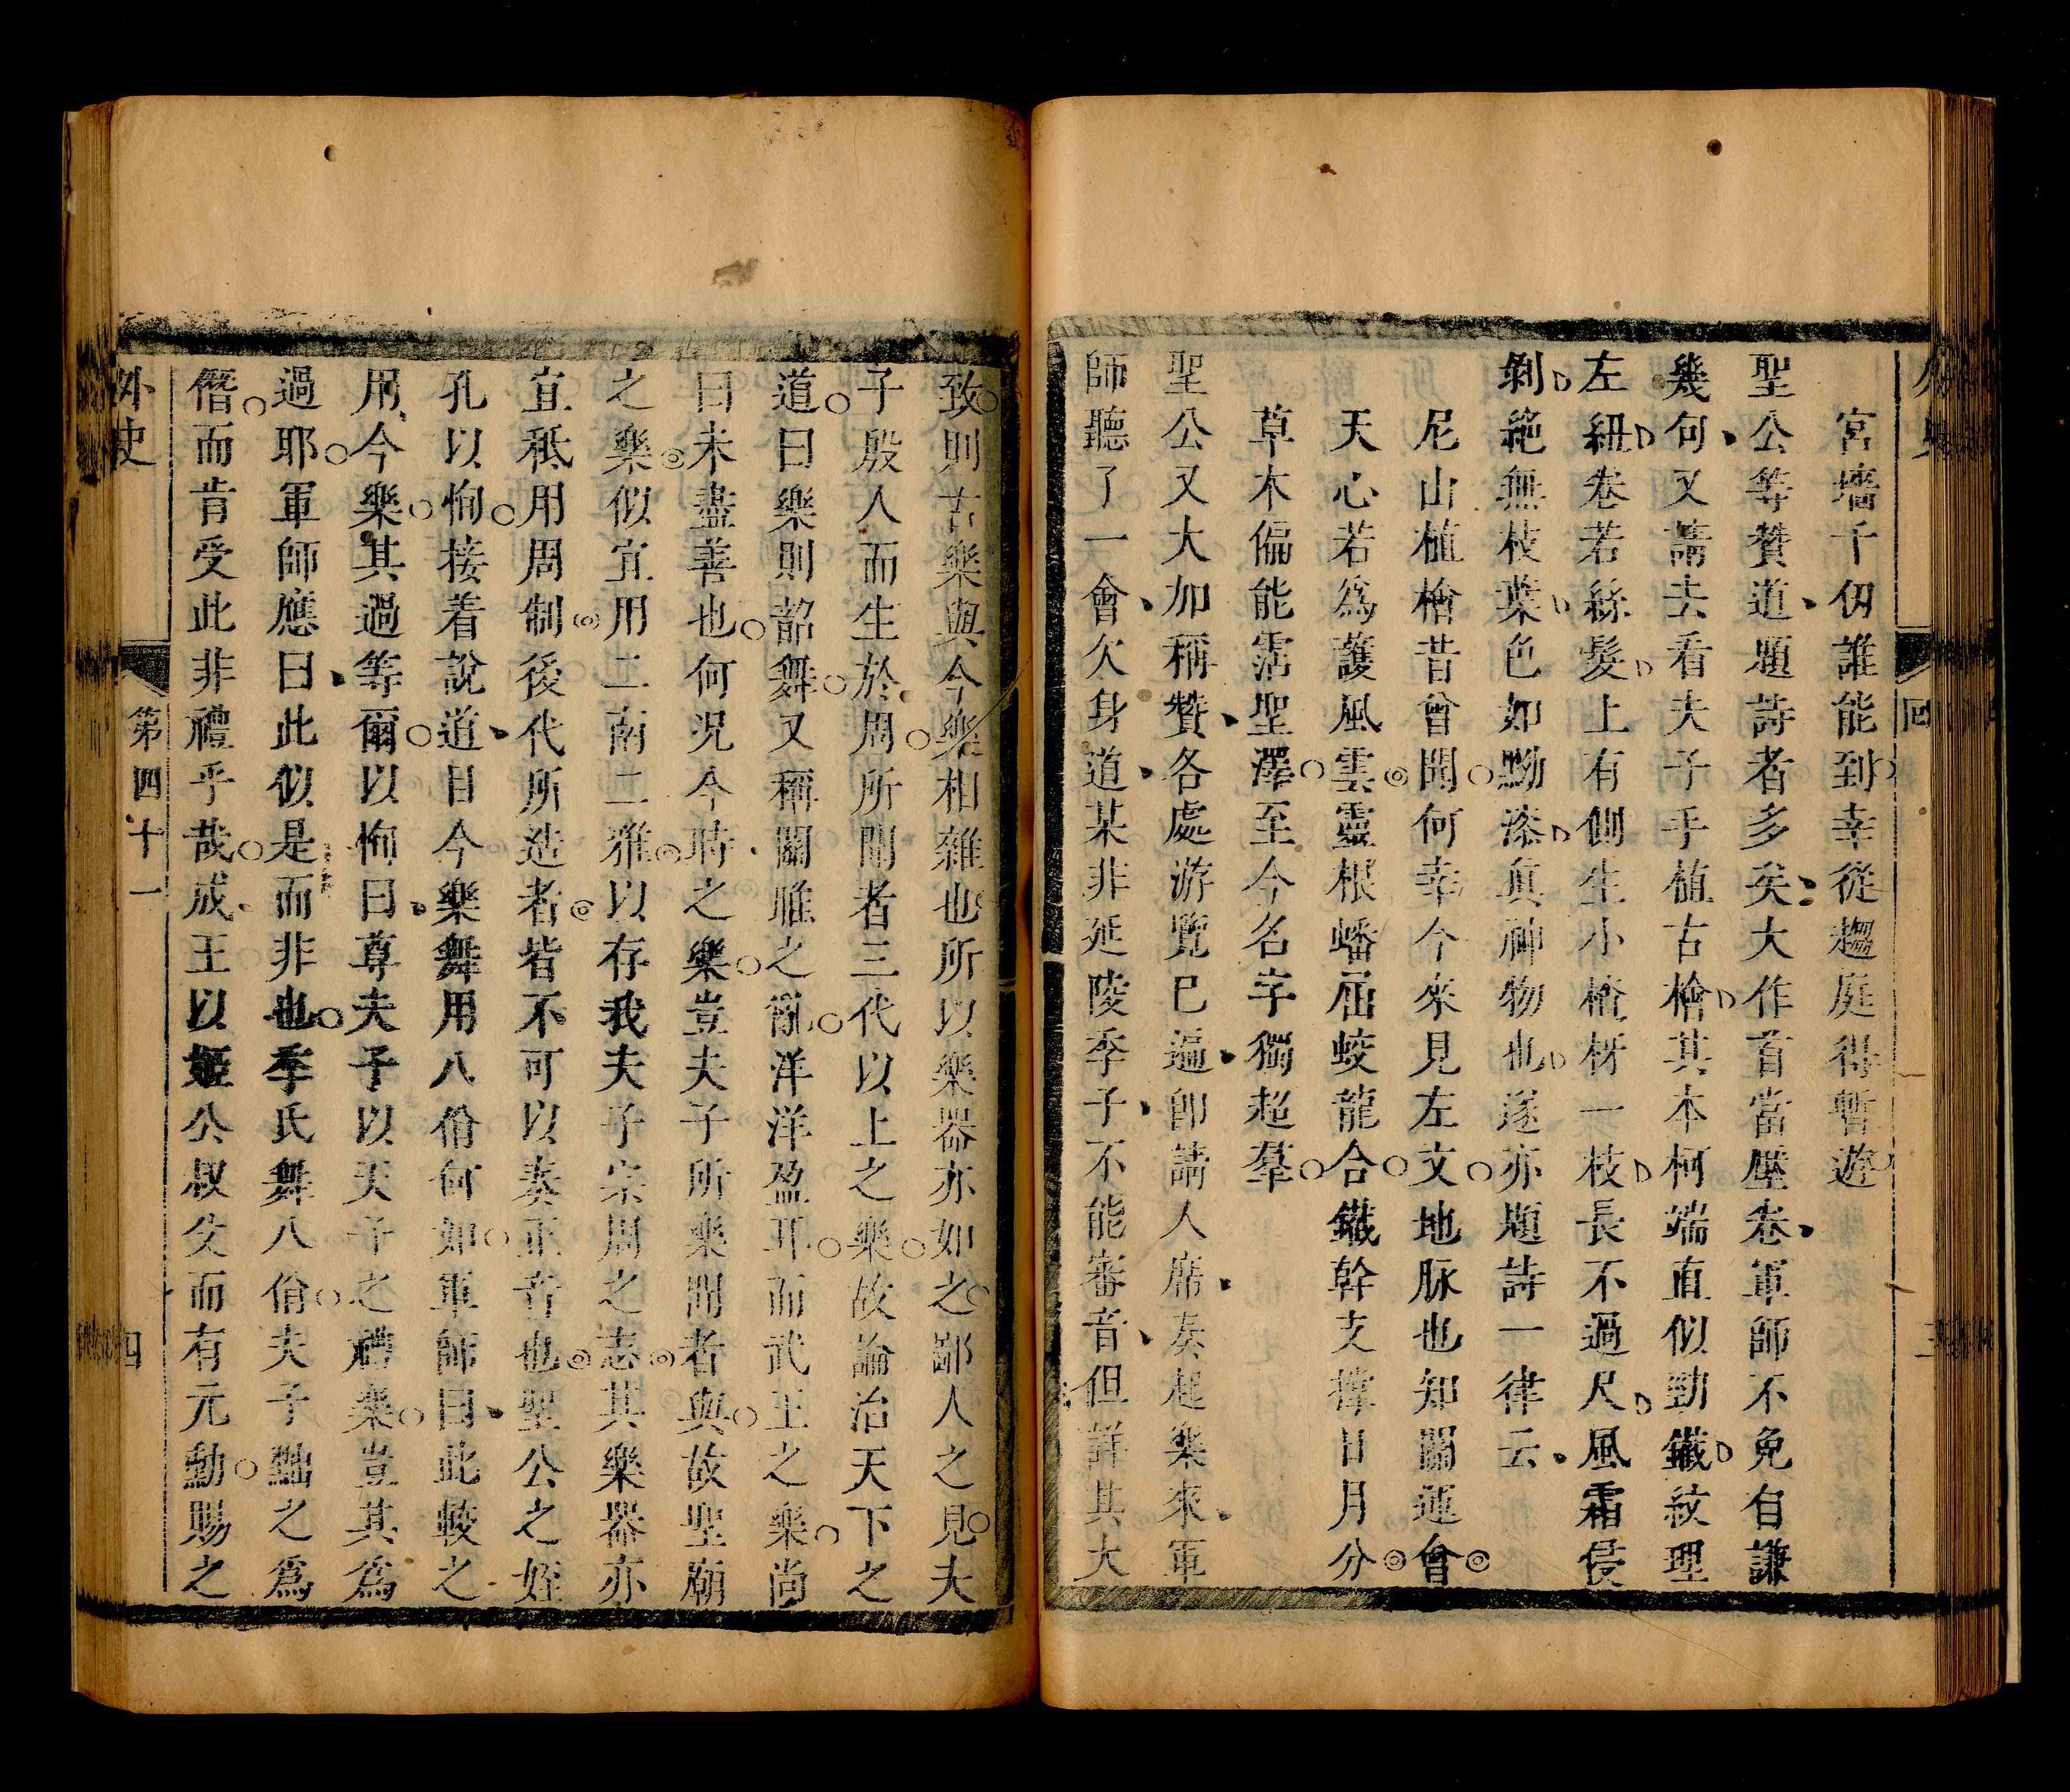 宮墻千仞誰能到幸從趨庭得暫遊
聖公等贊道題詩者多矣大作首當壓卷軍師不免自謙
幾句又請去看夫子手植古檜其本柯端直似勁鐵紋理
左紐卷若絲髮上有側生小楂枒一枝長不過尺風霜侵
剝絶無枝葉色如黝漆真神物也遂亦題詩一律云
尼山植檜昔曾聞何幸今來見左文地脉也知關運會
天心若爲護風雲靈根蟠屈蛟龍合鐵幹支撑日月分
草木偏能霑聖澤至今名字獨超羣
聖公又大加稱贊各處游覽已遍即請人席奏起樂來軍
師聽了一會欠身道某非延陵季子不能審音但詳其大
致則古樂與今樂相雜也所以樂器亦如之鄙人之見夫
子殷人而生於周所聞者三代以上之樂故論治天下之
道曰樂則韶舞又稱關雎之亂洋洋盈耳而武王之樂尚
曰未盡善也何况今時之樂豈夫子所樂聞者與故聖廟
之樂似宜用二南二雅以存我夫子宗周之志其樂器亦
宜秪用周制後代所造者皆不可以奏正音也聖公之姪
孔以恂接着說道目今樂舞用八佾何如軍師曰此較之
用今樂其過等爾以恂曰尊夫子以天子之禮樂豈其爲
過耶軍師應曰此似是而非也季氏舞八佾夫子黜之爲
僭而肯受此非禮乎哉成王以姬公叔父而有元勳賜之
外史
第四十一
四